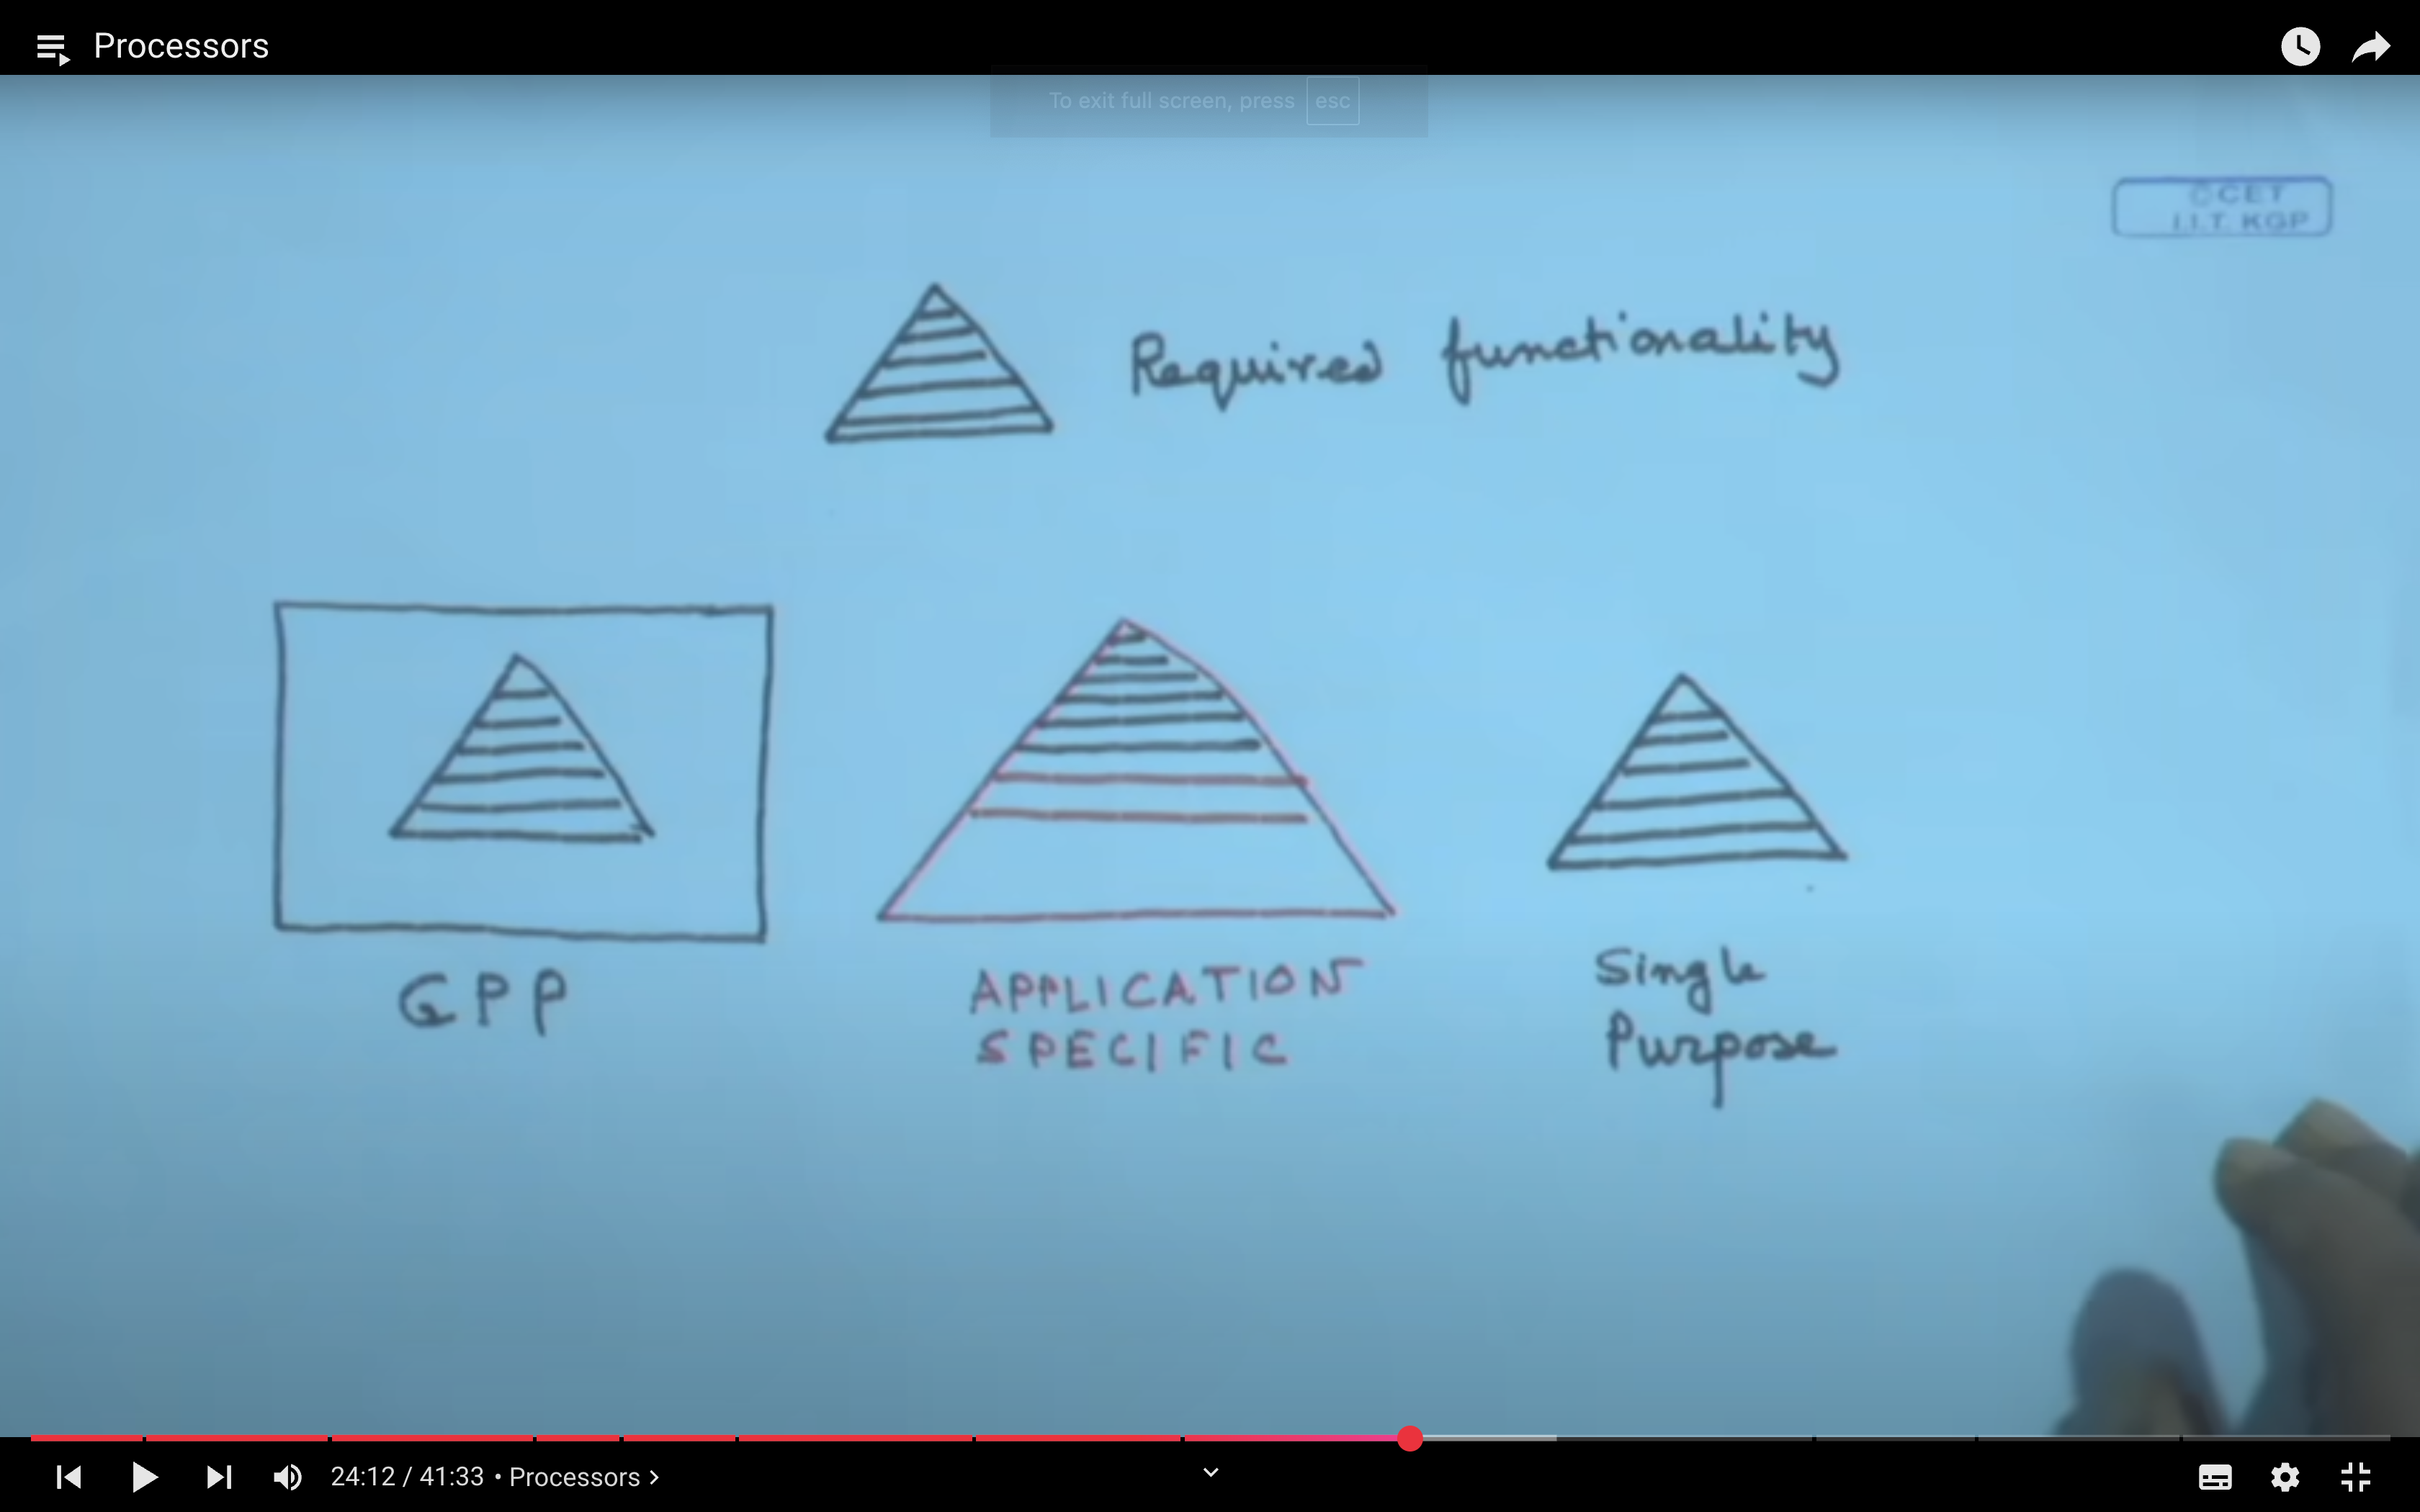 Processors
To exit full screen, press esc
©CET
I.I.T. KGP
Required functionality
GPP
APPLICATION
SPECIFIC
Single
Purpose
24:12 / 41:33 • Processors >